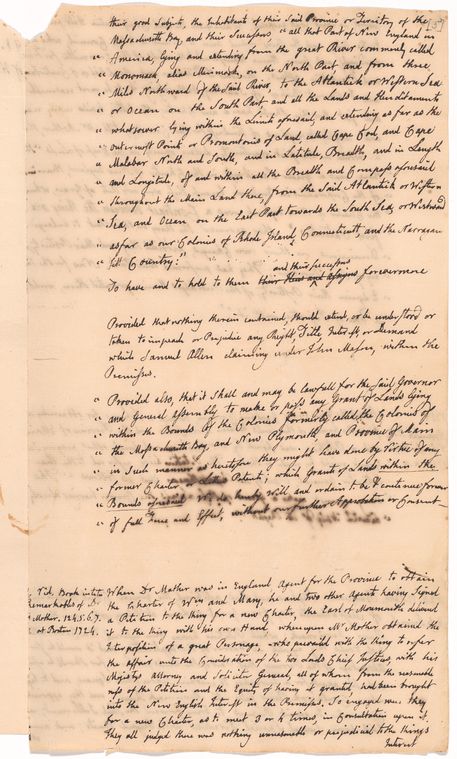 their good Subjects, the Inhabitants of this Said Province or Territory of the [5]
Massachusetts Bay, and their Successors, "all that Part of New England in
" America, lying and extending from the great River commonly called
" Monomack, alias Merimack, on the North Part and from three
" Miles Northward of the said River, to the Atlantick or Western Sea
" or Ocean on the South Part and all the Lands and Hereditaments
" whatsoever lying within the Limits aforesaid, and extending as far as the
" outermost Points or Promontories of Land called Cape Cod, and Cape
" Malebar North and South, and in Latitude, Breadth, and in Length
" and Longitude, of and within all the Breadth and Compass aforesaid
" throughout the Main Land there, from the Said Atlantick or Western
" Sea, and Ocean on the East Part towards the South Sea, or Westward
" as far as our Colonies of Rhode Island, Connecticutt, and the Narragan
" sett Country:"
and their Successors
To have and to hold to them their Heirs and Assigns forevermore
Provided that nothing therein contained, should extent, or be understood or
taken to impeade or Prejudice any Right, Title Interest, or Demand
which Samuel Allen claiming under John Mason, within the
Premisses.
" Provided also, that it shall and may be lawfull for the said Governor
" and General Assembly to make or pass any Grant of Lands lying
" within the Bounds of the Colonies formerly called the Colonies of
" the Massachusetts Bay, and New Plymouth, and Province of Main
" in Such manner as heretofore they might have done by Virtue of any
" former Charter or Patent; which Grant of Lands within the
" Bounds aforesaid We do hereby Will and ordain to be & continue forever
" of full Force and Effect, without our further Approbation or Consent
Vid. Book intitd
remarkables of Dr.
Mother. 124. 5. 6. 7.
at Boston 1724.
When Dr Mather was in England Agent for the Province to obtain
the Charter of Wm and Mary, he and two other Agents having Signed
a Petition to the King for a new Charter, the Earl of Monmouth delivered
it to the King with his own Hand, whereupon Mr. Mother obtained the
Interposition of a great Personage, who prevailed with the King to refer
the affair unto the Consideration of the two Lords Chief Justices, with his
Majestys Attorney and Solicitor General, all of whom from the reasonable
ness of the Petition and the Equity of having it granted, had been brought
into the New English Interest in the Premisses. So engaged were they
for a new Charter, as to meet 3 or 4 times, in Consultation upon it.
They all judged there was nothing unreasonable or prejudicial to the Kings
Interest